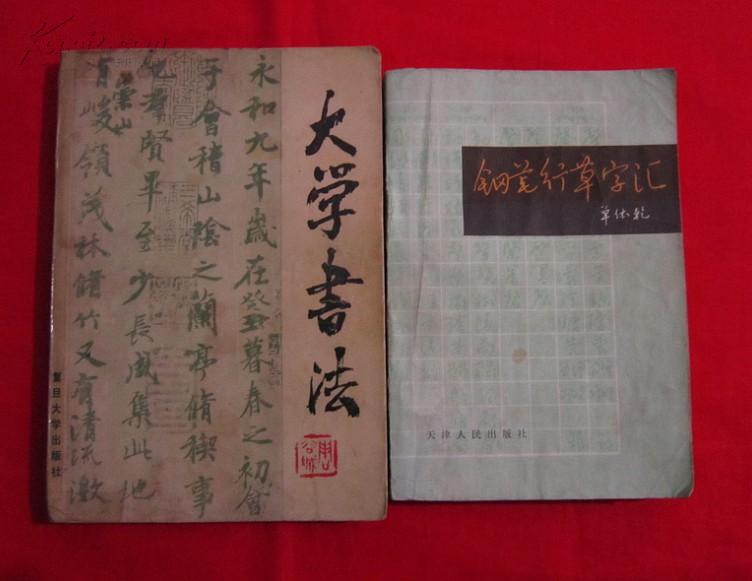 大学書法
永和九年歲在癸丑暮春之初會
于會稽山陰之蘭亭脩禊事
也羣賢畢至少長咸集此地
有峻嶺茂林脩竹又有清流激
崇山
复旦大学出版社
钢笔行草字汇
单体乾
天津人民出版社